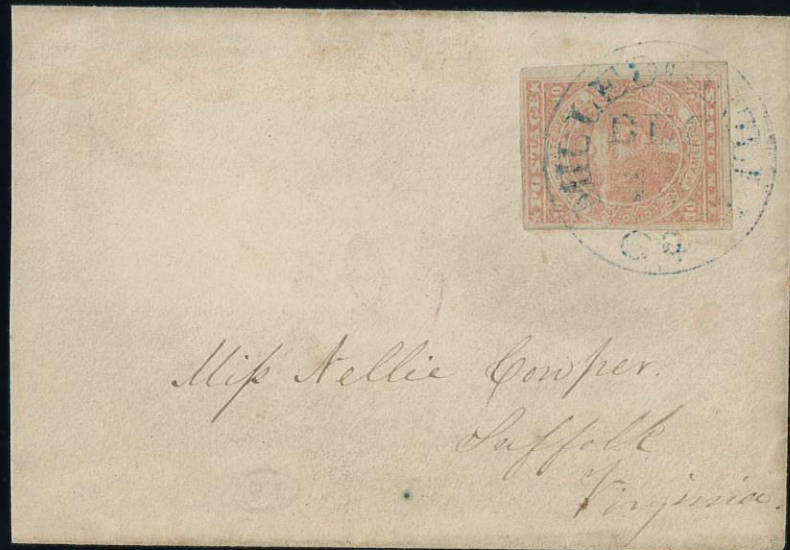 MILLEDGEVILLE
DEC
Ga
POSTAGE
TEN CENTS
Miss Nellie Cowper.
Suffolk
Virginia.